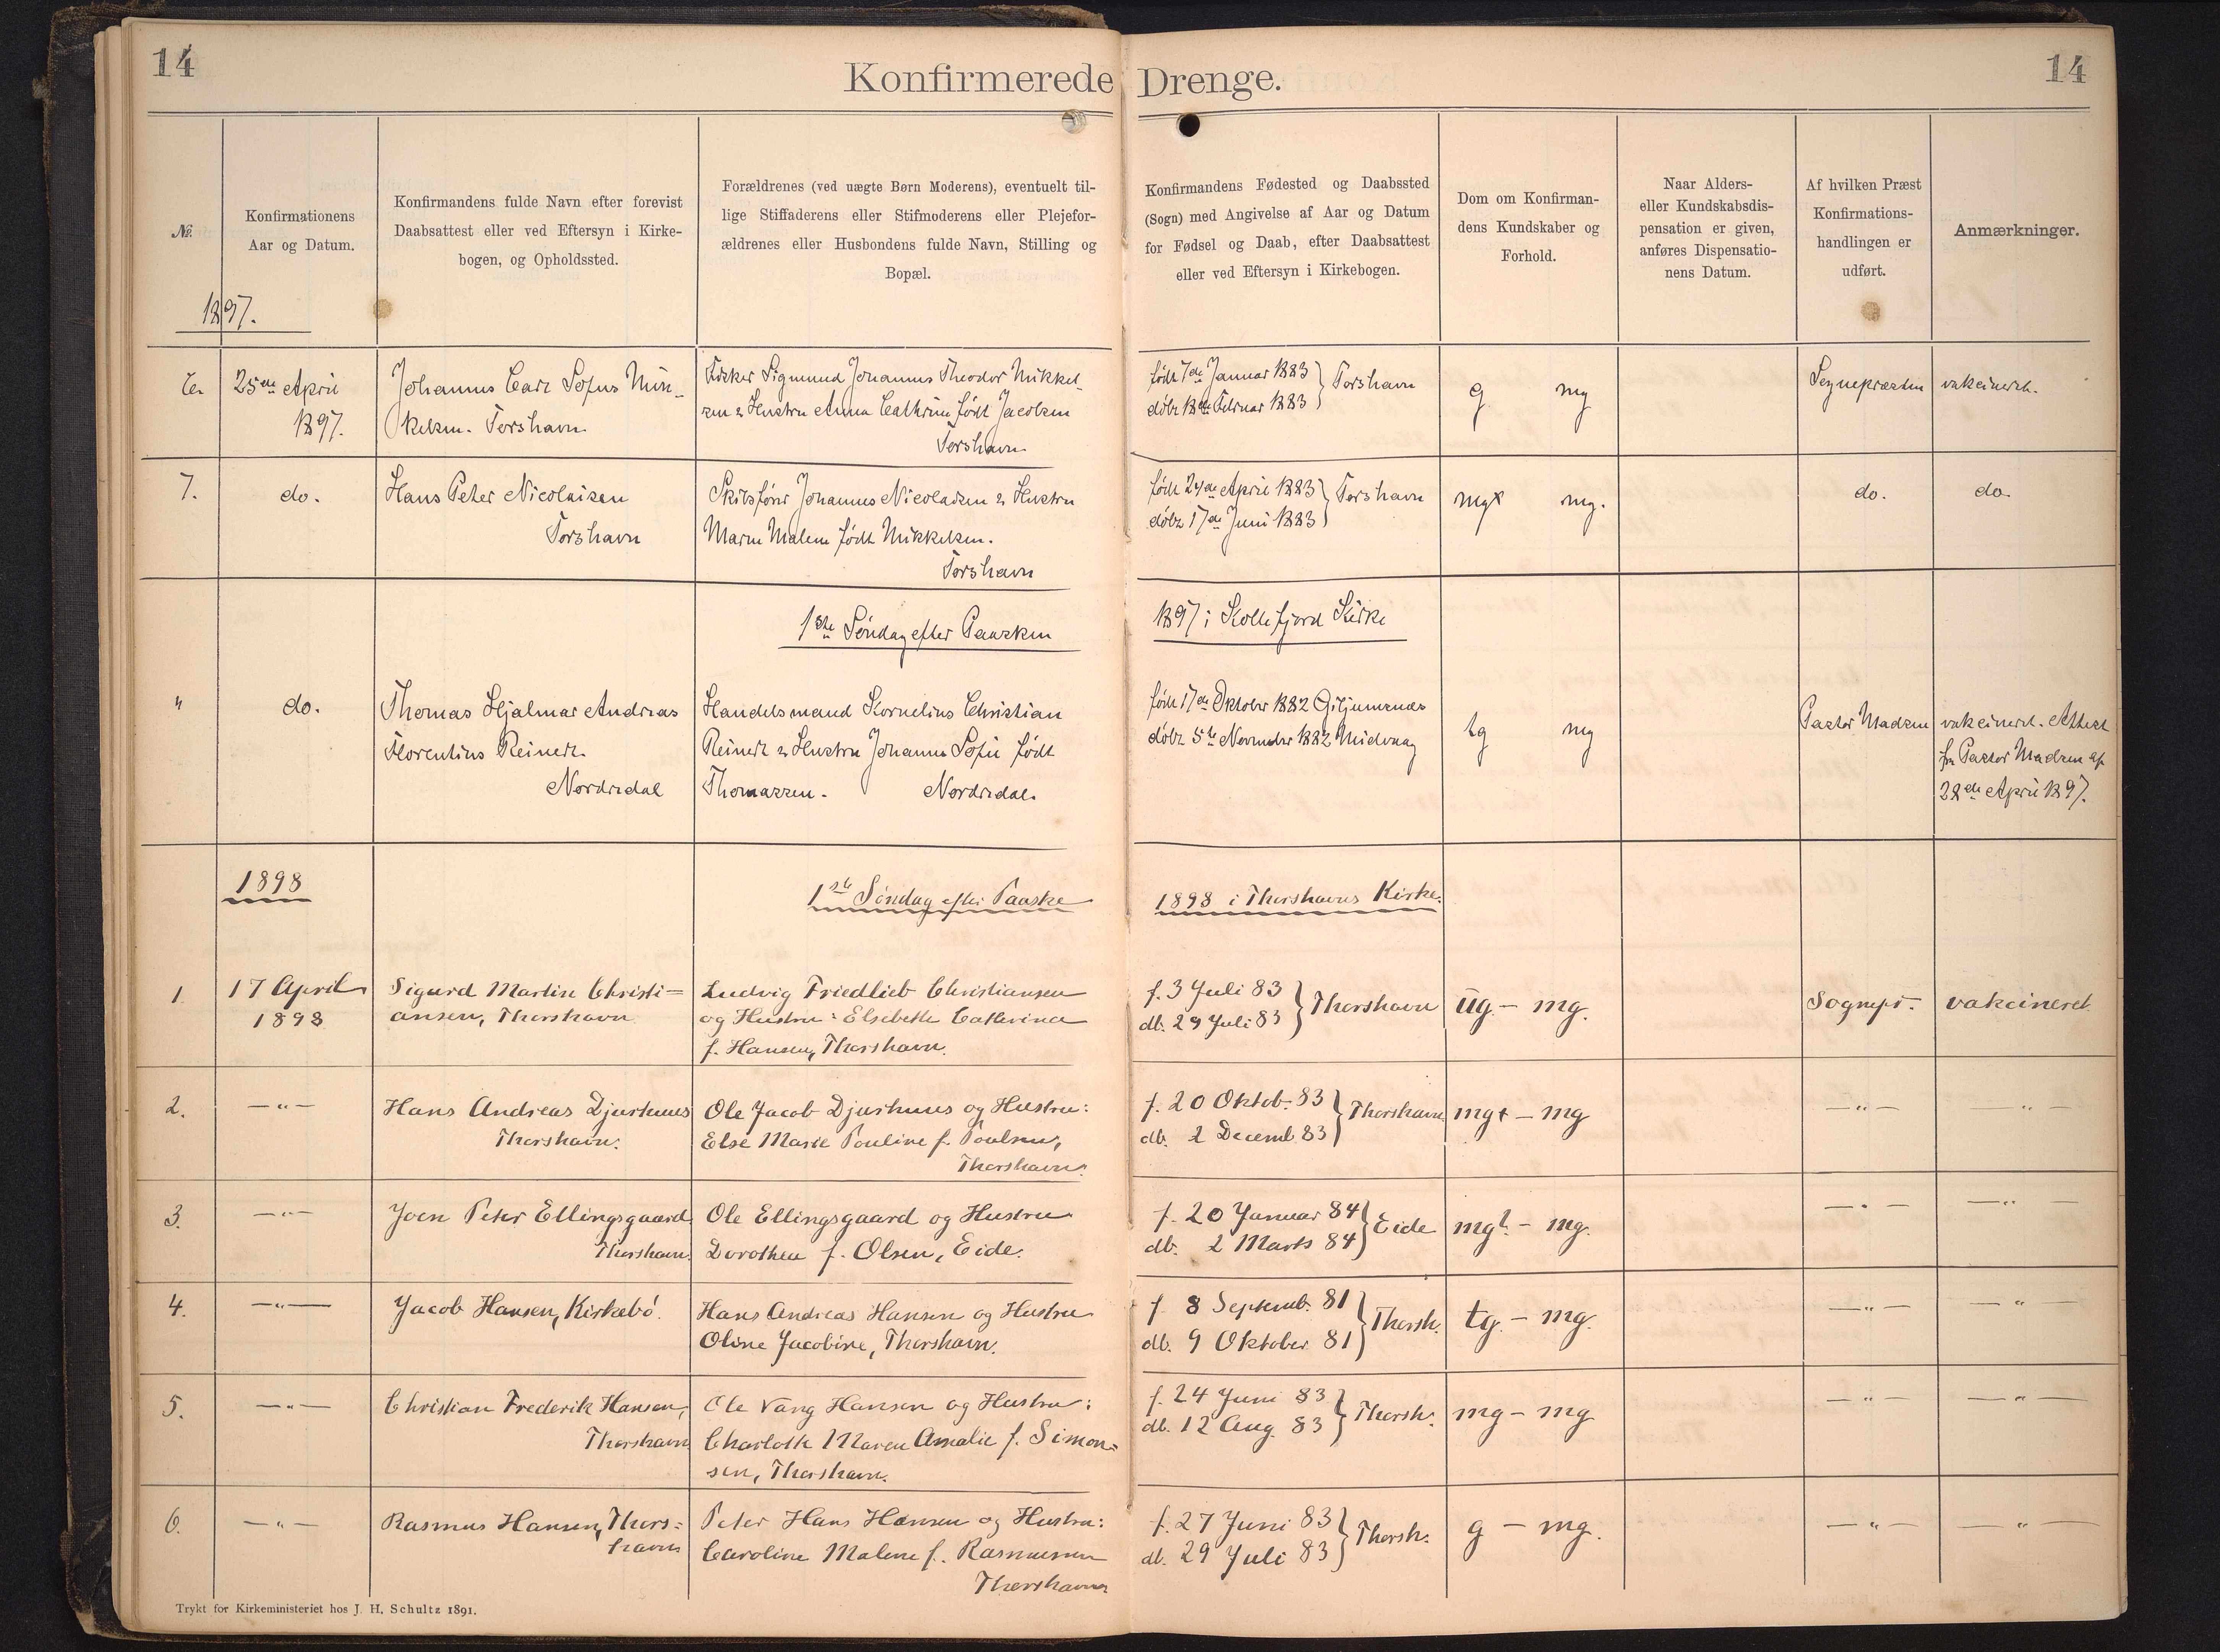 14
Konfirmerede Drenge.
14
№
Konfirmationens
Aar og Datum.
Konfirmandens fulde Navn efter forevist
Daabsattest eller ved Eftersyn i Kirke-
bogen, og Opholdssted.
Forældrenes (ved uægte Børn Moderens), eventuelt til-
lige Stiffaderens eller Stifmoderens eller Plejefor-
ældrenes eller Husbondens fulde Navn, Stilling og
Bopæl.
Konfirmandens Fødested og Daabssted
(Sogn) med Angivelse af Aar og Datum
for Fødsel og Daab, efter Daabsattest
eller ved Eftersyn i Kirkebogen.
Dom om Konfirman-
dens Kundskaber og
Forhold.
Naar Alders-
eller Kundskabsdis-
pensation er given,
anføres Dispensatio-
nens Datum.
Af hvilken Præst
Konfirmations-
handlingen er
udført.
Anmærkninger.
1897.
6.
25de April
1897.
Johannes Carl Sofus Mik-
kelsen. Torshavn
Fisker Sigmund Johannes Theodor Mikkel-
sen & Hustru Anna Cathrine født Jacobsen
Torshavn
født 7de Januar 1883
døbt 18de Februar 1883
Torshavn
g mg
Sognepræsten
vakcineret.
7.
do.
Hans Peter Nicolaisen
Torshavn
Skibsfører Johannes Nicolaisen & Hustru
Maren Malene født Mikkelsen.
Torshavn
født 24de April 1883
døbt 17de Juni 1883
Torshavn
mgx mg.
do.
do.
1ste Søndag efter Paasken
1897 i Kollefjord Kirke
"
do.
Thomas Hjalmar Andreas
Florentius Reinert.
Nordredal
Handelsmand Kornelius Christian
Reinert & Hustru Johanne Sofie født
Thomassen. Nordredal.
født 17de Oktober 1882 Giljumnæs
døbt 5te November 1882 Midvaag
tg mg
Pastor Madsen
vakcineret. Attest
fra Pastor Madsen af
28de April 1897.
1898
1ste Søndag efter Paaske
1898 i Thorshavns Kirke.
1.
17 April
1898
Sigurd Martin Christi=
ansen, Thorshavn
Ludvig Friedlieb Christiansen
og Hustru: Elsebeth Catherina
f. Hansen, Thorshavn.
f. 3 Juli 83
db. 29 Juli 83
Thorshavn
ug. — mg.
Sognepr.
vakcineret.
2.
— " —
Hans Andreas Djurhuus
Thorshavn.
Ole Jacob Djurhuus og Hustru:
Else Marie Pouline f. Poulsen,
Thorshavn.
f. 20 Oktob. 83
db. 2 Decemb. 83
Thorshavn
mg+ — mg
— " —
— " —
3.
— " —
Joen Peter Ellingsgaard
Thorshavn.
Ole Ellingsgaard og Hustru
Dorothea f. Olsen, Eide.
f. 20 Januar 84
db. 2 Marts 84
Eide
mg? — mg.
— " —
— " —
4.
— " —
Jacob Hansen, Kirkebø.
Hans Andreas Hansen og Hustru
Oline Jacobine, Thorshavn.
f. 8 Septemb. 81
db. 9 Oktober 81
Thorsh.
tg. — mg.
— " —
— " —
5.
— " —
Christian Frederik Hansen,
Thorshavn
Ole Vang Hansen og Hustru:
Charlotte Maren Amalie f. Simon-
sen, Thorshavn.
f. 24 Juni 83
db. 12 Aug. 83
Thorsh.
mg — mg
— " —
— " —
6.
— " —
Rasmus Hansen, Thors=
havn
Peter Hans Hansen og Hustru:
Caroline Malene f. Rasmussen
Thorshavn
f. 27 Juni 83
db. 29 Juli 83
Thorsh.
g — mg.
— " —
— " —
Trykt for Kirkeministeriet hos J. H. Schultz 1891.